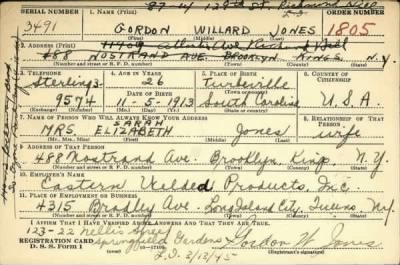 87-14 129th St. Richmond Hill
L.I.
SERIAL NUMBER 1. NAME (Print) ORDER NUMBER
3491 GORDON WILLARD JONES 1805
(First) (Middle) (Last)
2. ADDRESS (Print)
488 NOSTRAND AVE. BROOKLYN KINGS N.Y
(Number and street or R. F. D. number) (Town) (County) (State)
3. TELEPHONE 4. AGE IN YEARS 5. PLACE OF BIRTH 6. COUNTRY OF CITIZENSHIP
Sterling 3- 26 Turbeville
DATE OF BIRTH (Town or county)
9574 11-5-1913 South Carolina U.S.A.
(Exchange) (Number) (Mo.) (Day) (Yr.) (State or country)
7. NAME OF PERSON WHO WILL ALWAYS KNOW YOUR ADDRESS 8. RELATIONSHIP OF THAT PERSON
SARAH
MRS ELIZABETH Jones wife
(Mr., Mrs., Miss) (First) (Middle) (Last)
9. ADDRESS OF THAT PERSON
488 Nostrand Ave. Brooklyn, Kings N.Y.
(Number and street or R. F. D. number) (Town) (County) (State)
10. EMPLOYER'S NAME
Eastern Welded Products, Inc.
11. PLACE OF EMPLOYMENT OR BUSINESS
4315 Bradley Ave Long Island City, Queens, N.Y.
(Number and street or R. F. D. number) (Town) (County) (State)
I AFFIRM THAT I HAVE VERIFIED ABOVE ANSWERS AND THAT THEY ARE TRUE.
123-22 Nellis Street
REGISTRATION CARD
D. S. S. Form 1 Springfield Gardens Gordon W Jones
L.I. 2/12/45